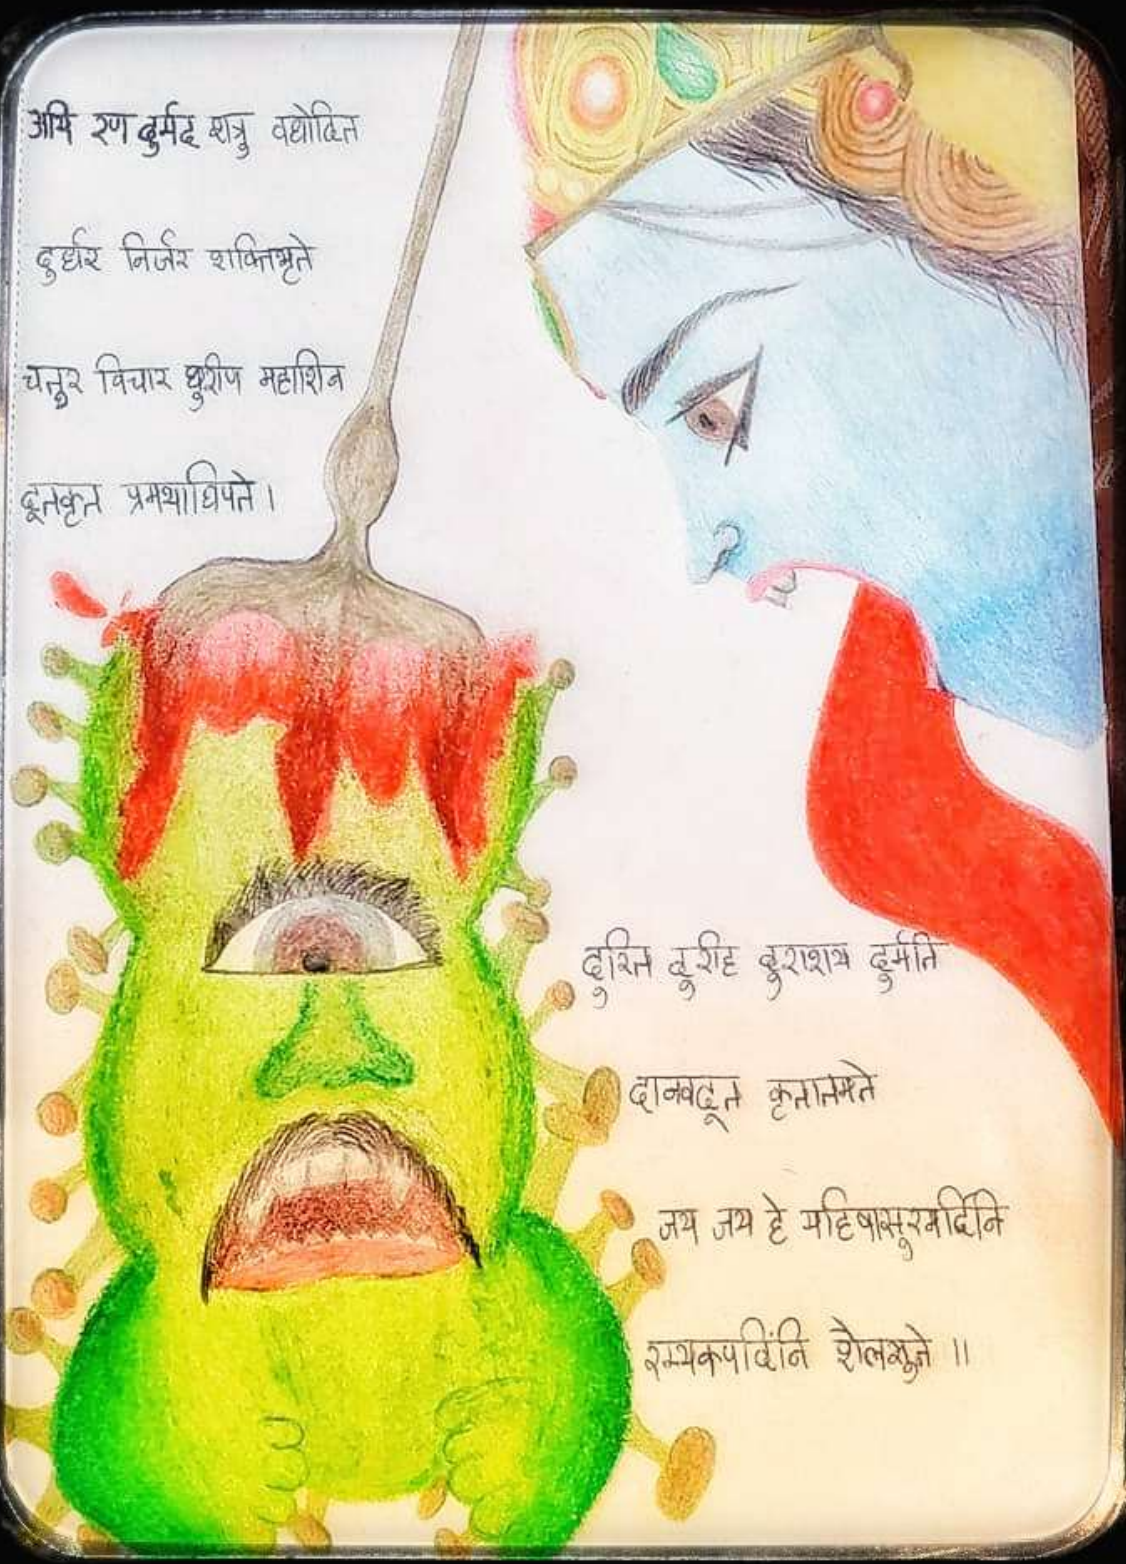 अयि रण दुर्मद शत्रु वधोदित
दुर्धर निर्जर शक्तिभृते
चतुर विचार धुरीण महाशिव
दूतकृत प्रमथाधिपते।
दुरित दुरीह दुराशय दुर्मति
दानवदूत कृतान्तमते
जय जय हे महिषासुरमर्दिनि
रम्यकपर्दिनि शैलसुते॥